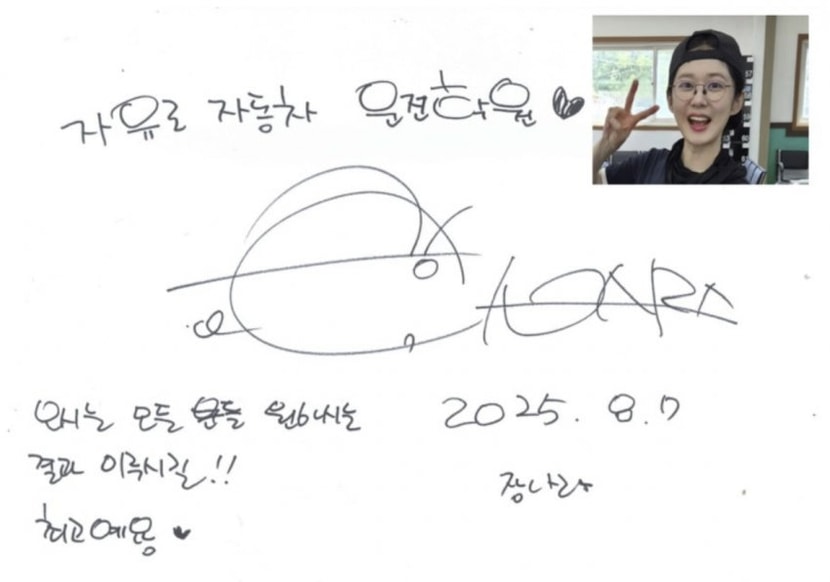 자유로 자동차 운전학원 ♥
오시는 모든 분들 원하시는
결과 이루시길!!
최고예용 ♥
2025. 8. 7
장나라